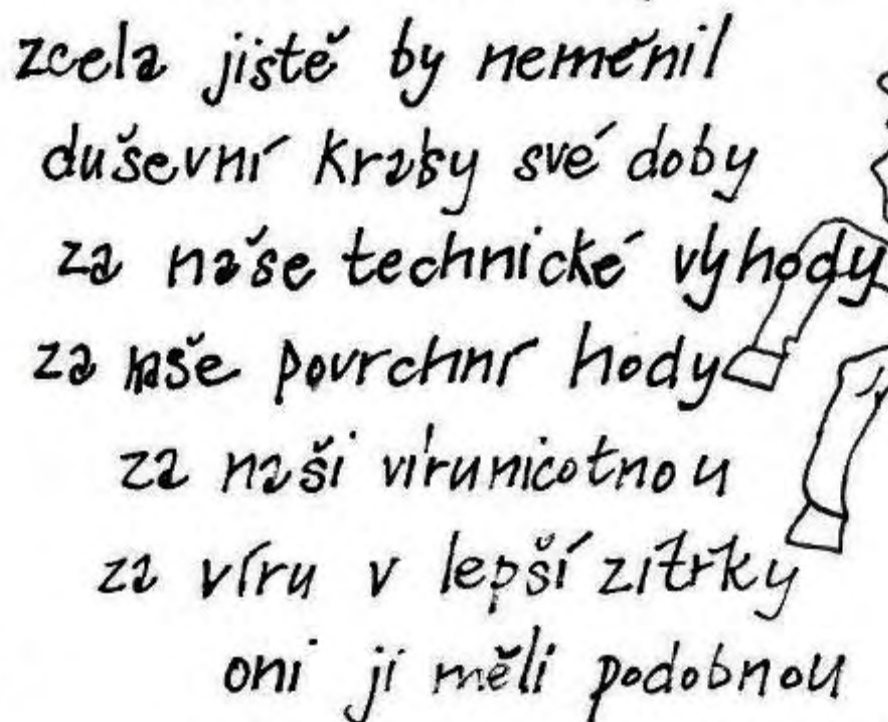 zcela jistě by neměnil
duševní kraby své doby
za naše technické výhody
za naše povrchní hody
za naši vírunicotnou
za víru v lepší zítřky
oni ji měli podobnou